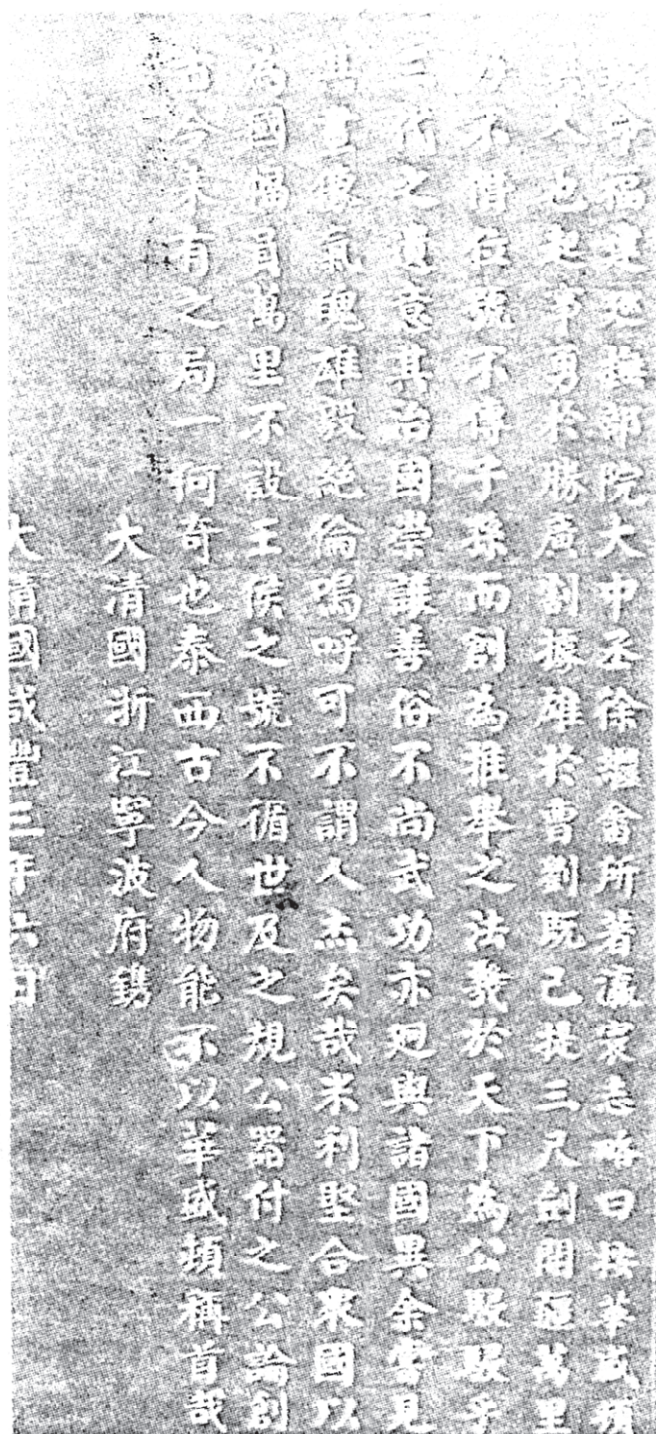 欽命福建巡撫部院大中丞徐繼畬所著瀛寰志略曰按華盛頓
異人也起事勇於勝廣割據雄於曹劉既已提三尺劍開疆萬里
乃不僭位號不傳子孫而創為推舉之法幾於天下為公駸駸乎
三代之遺意其治國崇讓善俗不尚武功亦迥與諸國異余嘗見
其畫像氣貌雄毅絕倫嗚呼可不謂人杰矣哉米利堅合衆國以
為國幅員萬里不設王侯之號不循世及之規公器付之公論創
古今未有之局一何奇也泰西古今人物能不以華盛頓稱首哉
大清國浙江寧波府鐫
大清國咸豐三年六月